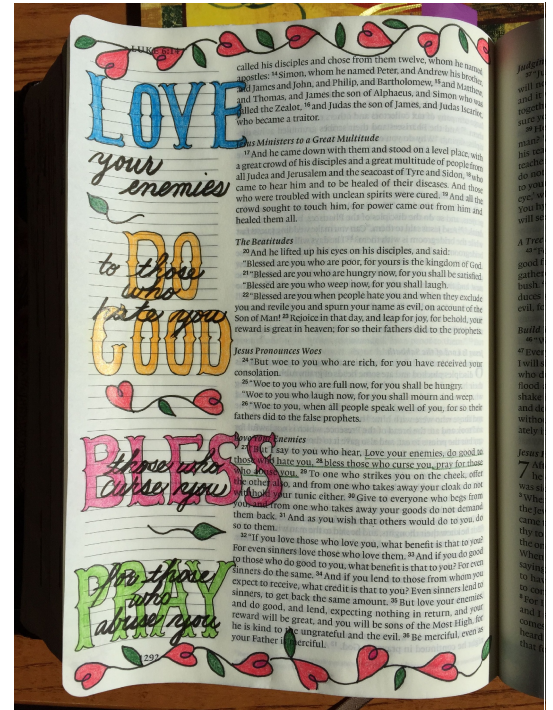 LUKE 6:14
LOVE
your
enemies
DO
to those
who
hate you
GOOD
BLESS
those who
curse you
PRAY
for those
who
abuse you
292
called his disciples and chose from them twelve, whom he named
apostles: 14 Simon, whom he named Peter, and Andrew his brother,
and James and John, and Philip, and Bartholomew, 15 and Matthew,
and Thomas, and James the son of Alphaeus, and Simon who was
called the Zealot, 16 and Judas the son of James, and Judas Iscariot,
who became a traitor.
Jesus Ministers to a Great Multitude
17 And he came down with them and stood on a level place, with
a great crowd of his disciples and a great multitude of people from
all Judea and Jerusalem and the seacoast of Tyre and Sidon, 18 who
came to hear him and to be healed of their diseases. And those
who were troubled with unclean spirits were cured. 19 And all the
crowd sought to touch him, for power came out from him and
healed them all.
The Beatitudes
20 And he lifted up his eyes on his disciples, and said:
"Blessed are you who are poor, for yours is the kingdom of God.
21 "Blessed are you who are hungry now, for you shall be satisfied.
"Blessed are you who weep now, for you shall laugh.
22 "Blessed are you when people hate you and when they exclude
you and revile you and spurn your name as evil, on account of the
Son of Man! 23 Rejoice in that day, and leap for joy, for behold, your
reward is great in heaven; for so their fathers did to the prophets.
Jesus Pronounces Woes
24 "But woe to you who are rich, for you have received your
consolation.
25 "Woe to you who are full now, for you shall be hungry.
"Woe to you who laugh now, for you shall mourn and weep.
26 "Woe to you, when all people speak well of you, for so their
fathers did to the false prophets.
Love Your Enemies
27 "But I say to you who hear, Love your enemies, do good to
those who hate you, 28 bless those who curse you, pray for those
who abuse you. 29 To one who strikes you on the cheek, offer
the other also, and from one who takes away your cloak do not
withhold your tunic either. 30 Give to everyone who begs from
you, and from one who takes away your goods do not demand
them back. 31 And as you wish that others would do to you, do
so to them.
32 "If you love those who love you, what benefit is that to you?
For even sinners love those who love them. 33 And if you do good
to those who do good to you, what benefit is that to you? For even
sinners do the same. 34 And if you lend to those from whom you
expect to receive, what credit is that to you? Even sinners lend to
sinners, to get back the same amount. 35 But love your enemies,
and do good, and lend, expecting nothing in return, and your
reward will be great, and you will be sons of the Most High, for
he is kind to the ungrateful and the evil. 36 Be merciful, even as
your Father is merciful.